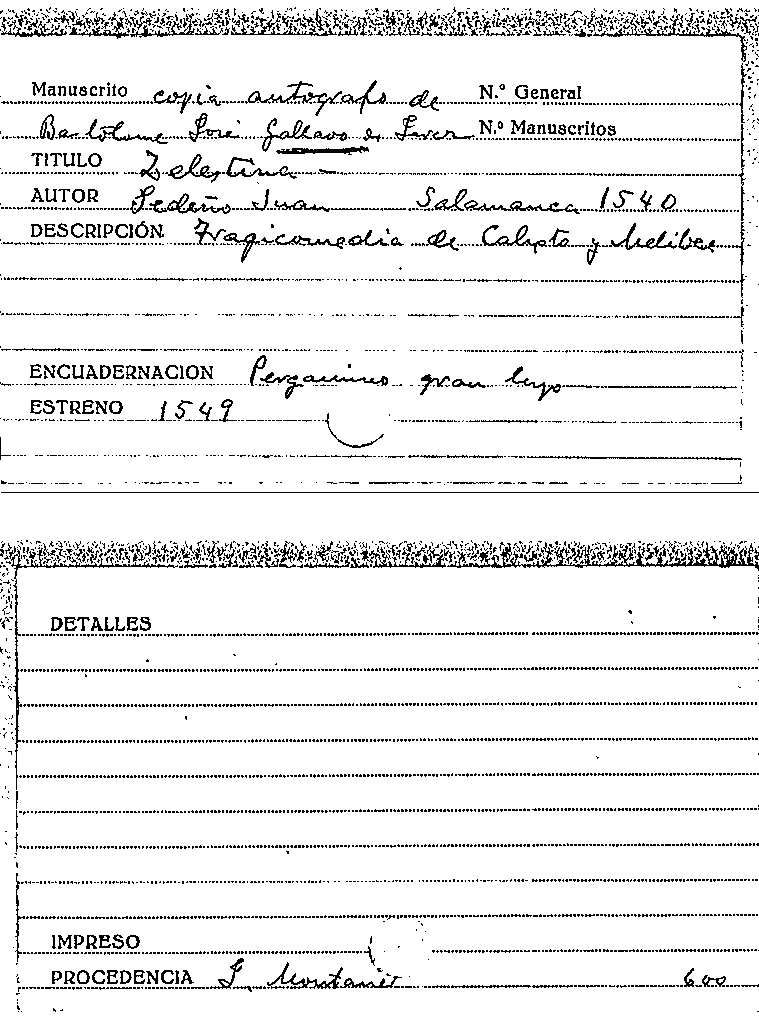 Manuscrito copia autografo de N.º General
Bartolome José Gallardo N.º Manuscritos
TITULO Zelestina —
AUTOR Sedeño Juan Salamanca 1540
DESCRIPCIÓN Tragicomedia de Calixto y Melibea
ENCUADERNACION Pergamino gran lujo
ESTRENO 1549
DETALLES
IMPRESO
PROCEDENCIA Montaner 600